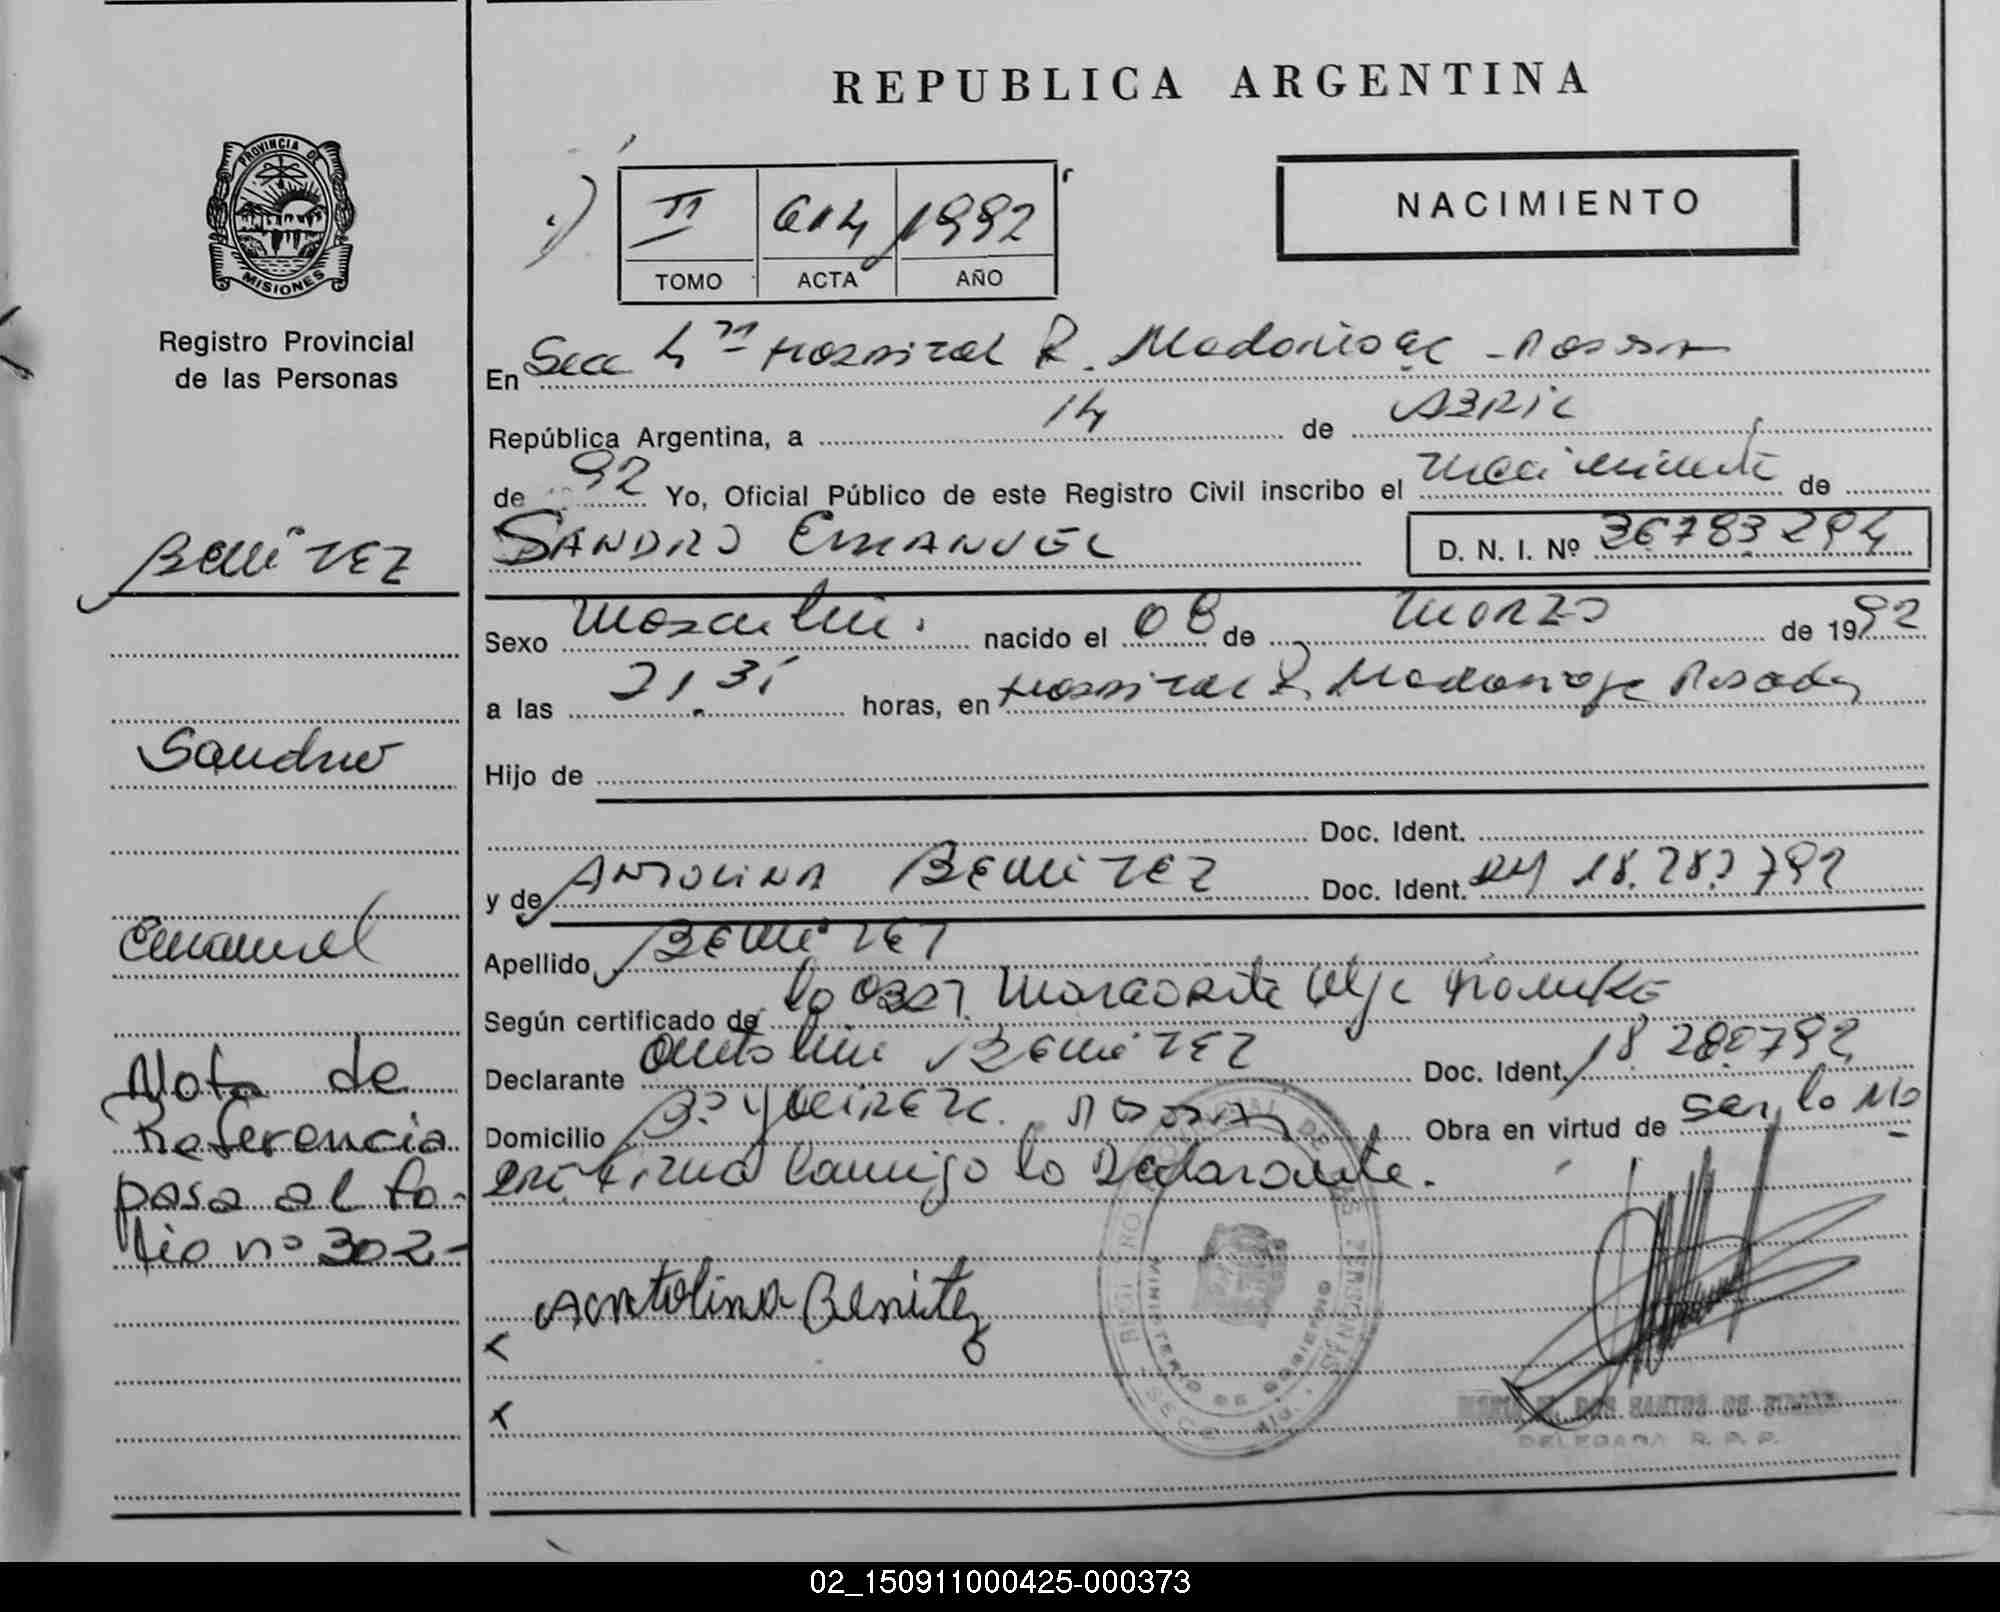 REPUBLICA ARGENTINA
PROVINCIA DE
MISIONES
Registro Provincial
de las Personas
II 614 1992
TOMO ACTA AÑO
NACIMIENTO
En Secc 4ª Hospital R. Madariaga
República Argentina, a 14 de ABRIL
de 92 Yo, Oficial Público de este Registro Civil inscribo el nacimiento de
SANDRO EMANUEL D. N. I. Nº 36783294
Sexo Masculino nacido el 08 de Marzo de 1992
a las 21.31 horas, en Hospital R. Madariaga Posadas
Hijo de
Doc. Ident.
y de ANTOLINA BENITEZ Doc. Ident.
Apellido BENITEZ
Según certificado de la Obst.
Declarante Antolina BENITEZ Doc. Ident. 18280792
Domicilio Bº Obra en virtud de ser la Ma
dre. Firma conmigo la Declarante.
Antolina Benitez
x
x
DELEGADA R. P. P.
MINISTERIO DE GOBIERNO
BENITEZ
Sandro
Emanuel
Nota de
Referencia
pasa al fo-
lio nº 302-
02_150911000425-000373